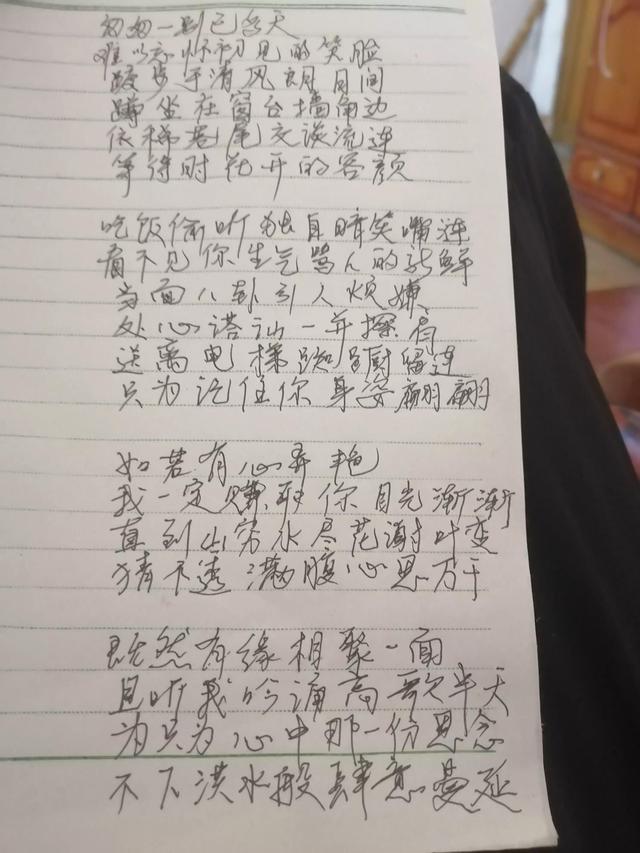 匆匆一别已多天
难以忘怀初见的笑脸
踱步于清风朗月间
蹲坐在窗台墙角边
依梯巷尾交谈流连
等待时花开的容颜
吃饭偷听独自暗笑嘴涟
看不见你生气骂人的新鲜
当面八卦引人烦嫌
处心搭讪一并探肩
送离电梯踟蹰留连
只为记住你身姿翩翩
如若有心弄艳
我一定赚取你目光渐渐
直到山穷水尽花谢叶变
猜不透满腹心思万千
既然有缘相聚一面
且听我吟诵高歌半天
为只为心中那一份思念
不下洪水般肆意蔓延